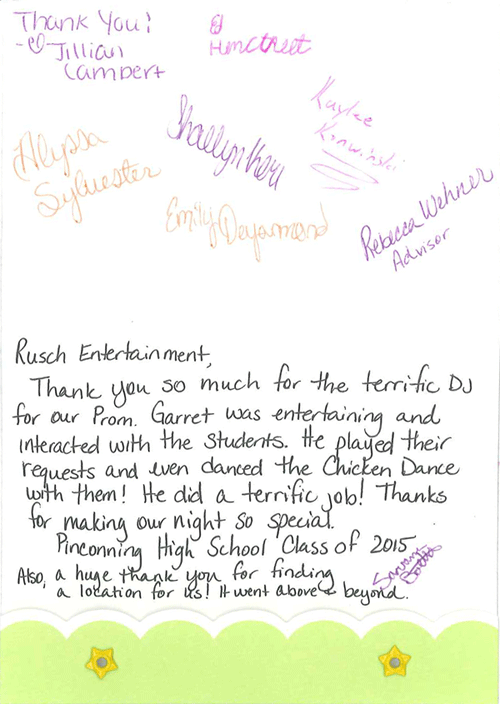 Thank You!
- Jillian
Lambert
Alyssa
Sylvester
Kaylee
Emily Deyarmond
Rebecca Wehner
Advisor
Rusch Entertainment,
Thank you so much for the terrific DJ
for our Prom. Garret was entertaining and
interacted with the students. He played their
requests and even danced the Chicken Dance
with them! He did a terrific job! Thanks
for making our night so special.
Pinconning High School Class of 2015
Also, a huge thank you for finding
a location for us! It went above & beyond.